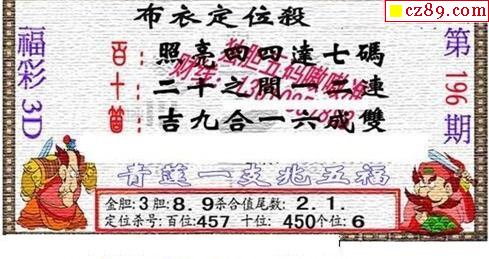 cz89.com
布衣定位殺
福彩3D
第196期
百：照亮四四達七碼
十：二千之閣一二連
笛：吉九合一六成雙
青蓮一支兆五福
金胆:3胆:8.9杀合值尾数:2.1.
定位杀号:百位:457十位:450个位:6